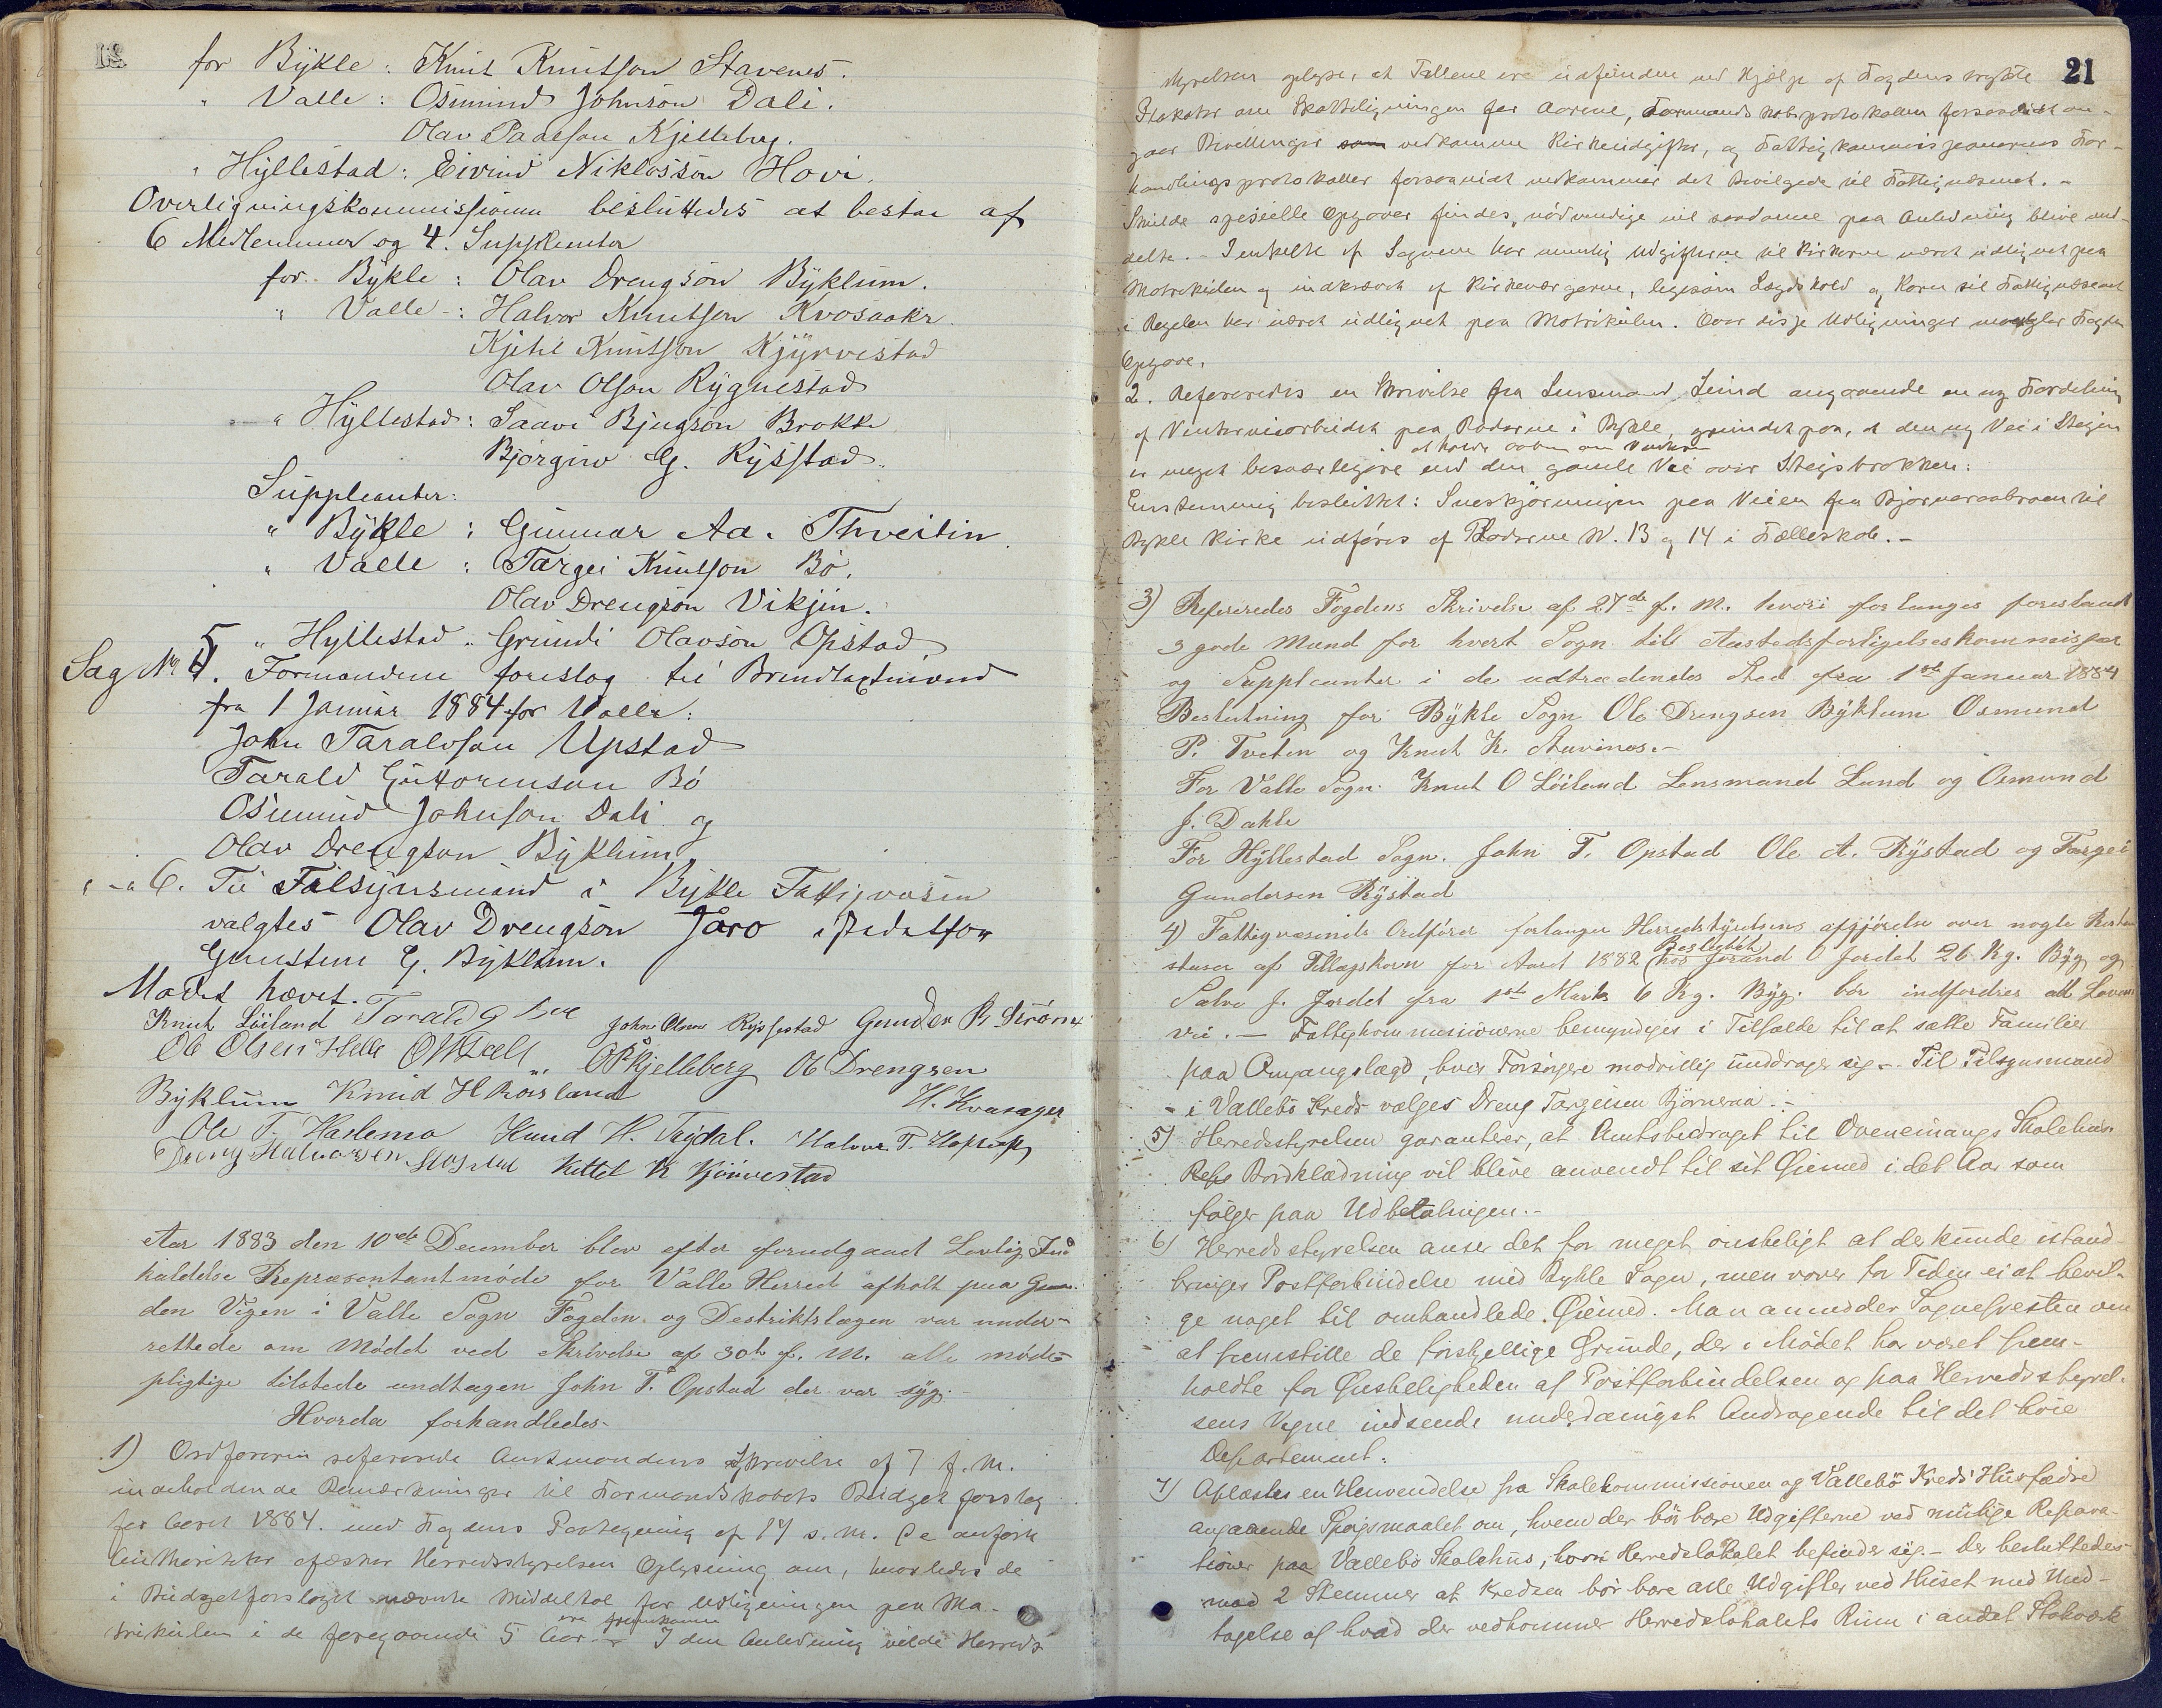 for Bykle: Knut Knutson Stavenes.
" Valle: Osmund Johnson Dali.
Olav Paalson Kjelleberg.
" Hyllestad: Eivind Niklosson Hovi.
Overligningskommissionen besluttedes at bestaa af
6 Medlemmer og 4 Suppleanter
for Bykle: Olav Drengson Byklum.
" Valle: Halvor Knutson Kvosaaker
Kjetil Knutson Kjyrvestad
Olav Olson Rygnestad
" Hyllestad: Saavi Bjugson Brokke
Bjorgiw G. Rysstad.
Suppleanter:
" Bykle: Gunnar Aa. Thveitin.
" Valle: Targei Knutson Bö.
Olav Drengson Vikjin.
" Hyllestad " Grundi Olavson Opstad
Sag No 5. Formandene foreslog til Brandtaxtmænd
fra 1 Januar 1884 for Valle:
John Taraldson Upstad
Tarald Guttormson Bö
Osmund Johnson Dali og
Olav Drengson Byklum
" - " 6. Til Tilsynsmand i Bykle Fattigvæsen
valgtes Olav Drengson Jaro istedetfor
Gunsteine G. Byklum.
Mødet hævet.
Knut Löiland Tarald G Bøe John Olsen Rysstad Gunder P. Strömx
Ole Olsen Helle O. P. Kjelleberg Ole Drengsen
Byklum Knud H Rorsland H. Kvasager
Ole T. Harlemo Knud H. Trydal. Halvor T.
Dreng Halvorsen Kittel K Kjörvestad
Aar 1883 den 10de December blev efter forudgaaet Lovlig Ind
kaldelse Repræsentantmöde for Valle Herred afholt paa Gaar
den Vigen i Valle Sogn Fogden og Destriktslægen var under-
rettede om Mödet ved Skrivelse af 30te f. M. alle möde-
pligtige tilstede undtagen John T. Opstad der var syg.
Hvorda forhandledes.
1) Ordföreren refererede Amtmandens Skrivelse af 7 f. M.
indeholdende Bemærkninger til Formandskabets Budget forslag
for Aaret 1884. med Fogdens Paategning af 17 s. M. De anförte
Autoriteter æsker Herredsstyrelsen Oplysning om, hvorledes de
i Budgetforslaget nævnte Middeltal for Udligningen paa Ma-
trikulen i de foregaaende 5 Aar ere fremkomne. I den Anledning vilde Herreds
21
styrelsen oplyse, at Tallene ere udfundne ved Hjælp af Fogdens trykte
Plakater om Skatteligningen for Aarene, Formandskabsprotokollen forsaavidt an-
gaar Bevillinger som vedkomme Kirkeudgifter, og Fattigkommissionernes For-
handlingsprotokoller forsaavidt vedkommer det Bevilgede til Fattigvæsenet. -
Skulde specielle Opgaver findes nödvendige vil saadanne paa Anledning blive med-
delte. - I enkelte af Sognene har nemlig Udgifterne til Kirkerne været udlignet paa
Matrikulen og indkrævet af Kirkeværgerne, ligesom Lægdskold og Korn til Fattigvæsenet
i Regelen har været udlignet paa Matrikulen. Over disse Udligninger mangler Fogden
Opgave.
2. Refereredes en Skrivelse fra Lensmand Lund angaaende en ny Fordeling
af Vinterveiarbeidet paa Roderne i Bykle, grundet paa, at den ny Vei i Steigen
at holde aaben om Vinteren
er meget besværligere end den gamle Vei over Steigsbrokken:
Enstemmig besluttet: Sneskjörningen paa Veien fra Bjørneraabroen til
Bykle Kirke udföres af Roderne N. 13 og 14 i Fælleskab. -
3) Refereredes Fogdens Skrivelse af 27de f. M. hvori forlanges foreslaaet
3 gode Mænd for hvert Sogn til Aastedsforligelseskommissær
og Suppleanter i de udtrædendes Sted fra 1ste Januar 1884
Beslutning for Bykle Sogn Ole Drengsen Byklum Osmund
P. Tveten og Knut K. Stavenes. -
For Valle Sogn Knut O Löiland Lensmand Lund og Osmund
J. Dahle
For Hyllestad Sogn. John T. Opstad Ole A. Rystad og Targei
Gundersen Rystad
4) Fattigvæsenets Ordförer forlanger Herredsstyrelsens afgjörelse over nogle Restan
Besluttet
stuser af Tillægskorn for Aaret 1882 hos Jorand O Jordet 26 Kg. Byg og
Salve J. Jordet fra 1ste Marts 6 Kg. Byg. bör indfordres ad Lovens
vei. - Fattigkommissionerne bemyndiges i Tilfælde til at sætte Familier
paa Omgangslægd, hvis Forsörgere modvillig unddrager sig. - Til Tilsynsmand
- i Vallebö Kreds vælges Dreng Targeisen Bjørneraa. -
5) Herredsstyrelsen garanterer, at Amtsbidraget til Oveneinangs Skolehus.
Reps Bordklædning vil blive anvendt til sit Øiemed i det Aar som
fölger paa Udbetalingen. -
6) Herredsstyrelsen anser det for meget önskeligt at der kunde istand-
bringes Postforbindelse med Bykle Sogn, men vover for Tiden ei at bevil-
ge noget til omhandlede Øiemed. Man anmoder Sognepresten om
at fremstille de forskjellige Grunde, der i Mödet har været frem-
holdte for Ønskeligheden af Postforbindelsen og paa Herredsstyrel-
sens Vegne indsende underdanigst Andragende til det høie
Departement.
7) Oplæstes en Henvendelse fra Skolekommissionen og Vallebö Kreds Husfædre
angaaende Spörgsmaalet om, hvem der bör bære Udgifterne ved nutige Repara-
tioner paa Vallebö Skolehus, hvori Herredslokalet befinder sig. - Der besluttedes
mod 2 Stemmer at Kredsen bör bære alle Udgifter ved Huset med Und-
tagelse af hvad der vedkommer Herredslokalets Rum i andet Stokværk